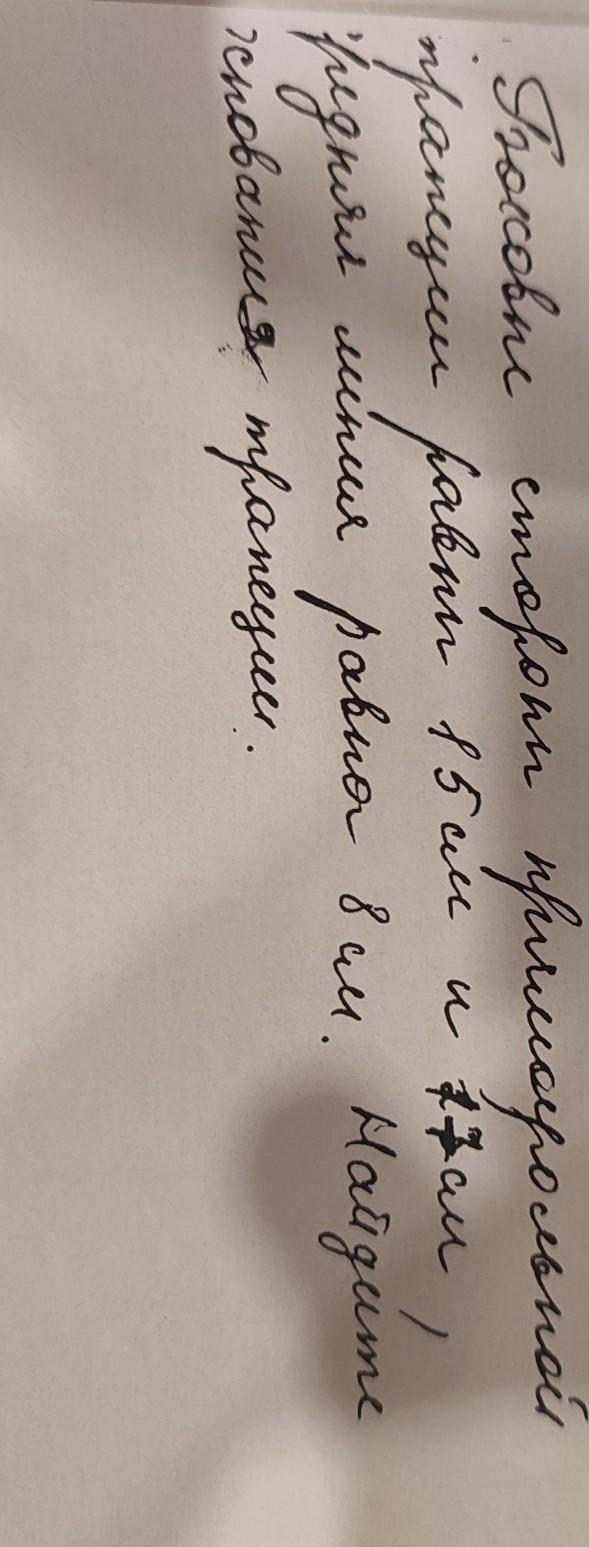 Боковые стороны прямоугольной
трапеции равны 15 см и 17 см,
средняя линия равна 8 см. Найдите
основания трапеции.